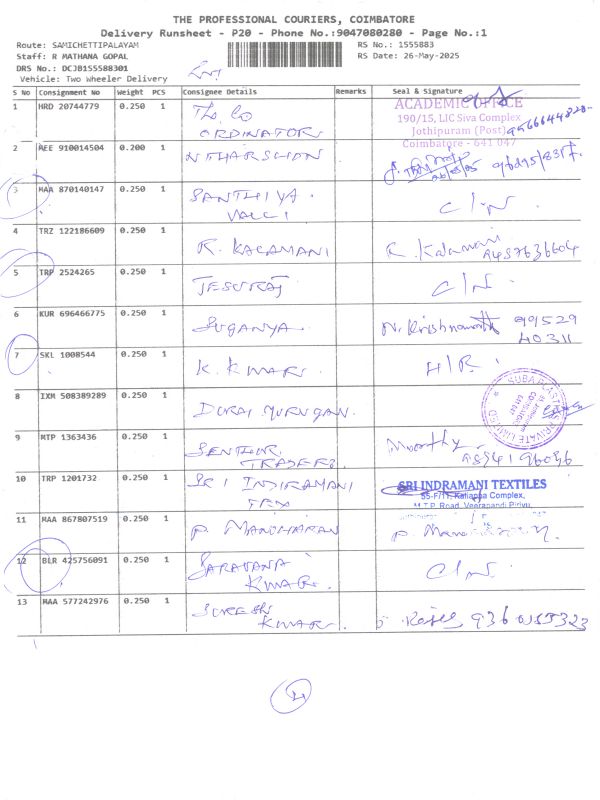 THE PROFESSIONAL COURIERS, COIMBATORE
Delivery Runsheet - P20 - Phone No.:9047080280 - Page No.:1
Route: SAMICHETTIPALAYAM RS No.: 1555883
Staff: R MATHANA GOPAL RS Date: 26-May-2025
DRS No.: DCJB155588301
Vehicle: Two Wheeler Delivery
S No Consignment No Weight PCS Consignee Details Remarks Seal & Signature
1 HRD 20744779 0.250 1 The Co ACADEMIC OFFICE
190/15, LIC Siva Complex
ORDINATOR Jothipuram (Post)
Coimbatore - 641 047
2 AEE 910014504 0.200 1
3 MAA 870140147 0.250 1 SANTHIYA C/N.
VALLI
4 TRZ 122186609 0.250 1 K. KALAMANI R. Kalamani
9487636604
5 TRP 2524265 0.250 1 JESURAJ C/N.
6 KUR 696466775 0.250 1 SUGANYA. N. Krishnamoorth 99529
40311
7 SKL 1008544 0.250 1 K. KUMAR. H/R.
8 IXM 508389289 0.250 1 DURAI MURUGAN. SUBA PLASTICS PRIVATE LIMITED
9 MTP 1363436 0.250 1 SENTHUR Moorthy
TRADERS.
10 TRP 1201732 0.250 1 SRI INDIRAMANI SRI INDRAMANI TEXTILES
TEX 55-F/11, Kaliappa Complex,
M.T.P. Road, Veerapandi Pirivu,
11 MAA 867807519 0.250 1 P. MANOHARAN
12 BLR 425756091 0.250 1 SARAVANA C/N.
KUMAR.
13 MAA 577242976 0.250 1 SURESH
KUMAR.